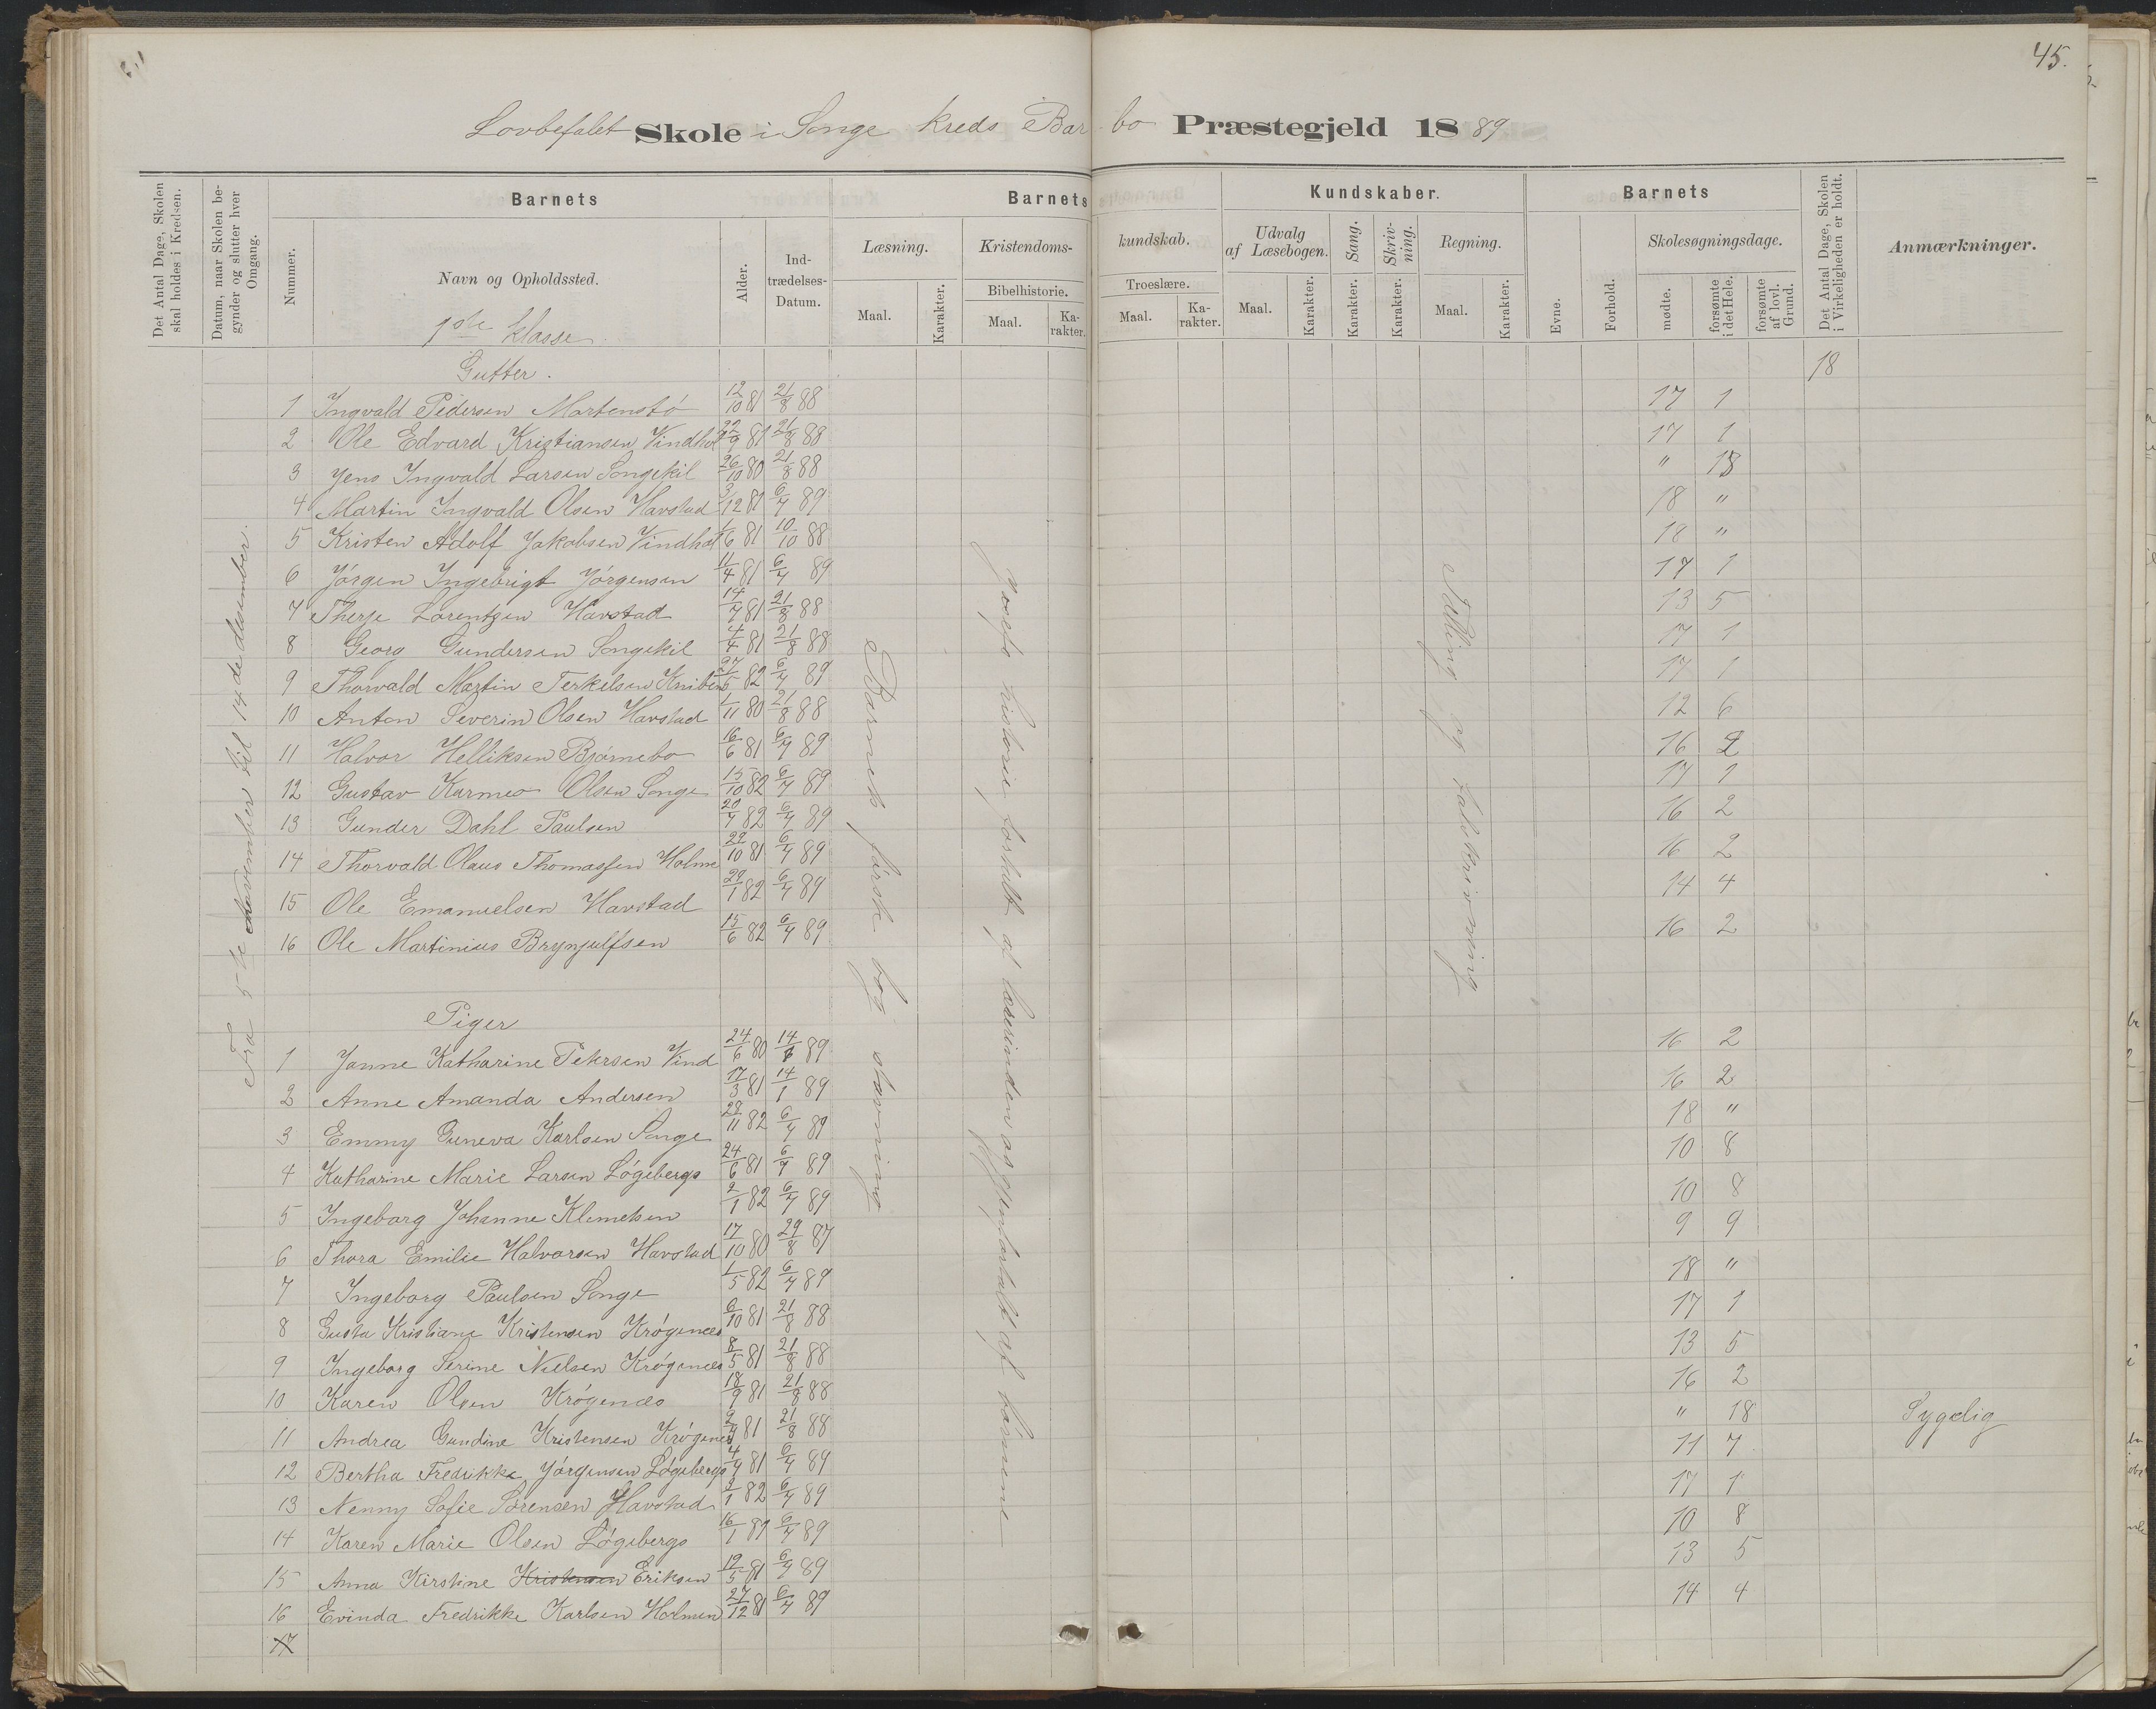 45.
Lovbefalet Skole i Songe Kreds Barbo Præstegjeld 1889
Det Antal Dage, Skolen skal holdes i Kredsen.
Datum, naar Skolen begynder og slutter hver Omgang.
Nummer.
Barnets
Navn og Opholdssted.
Alder.
Indtrædelses-Datum.
Barnets Kundskaber.
Læsning.
Maal.
Karakter.
Kristendomskundskab.
Bibelhistorie.
Maal.
Karakter.
Troeslære.
Maal.
Karakter.
Udvalg af Læsebogen.
Maal.
Karakter.
Sang.
Karakter.
Skrivning.
Karakter.
Regning.
Maal.
Karakter.
Barnets
Evne.
Forhold.
Skolesøgningsdage.
mødte.
forsømte i det Hele.
forsømte af lovl. Grund.
Det Antal Dage, Skolen i Virkeligheden er holdt.
Anmærkninger.
1ste Klasse.
Gutter. 18
1 Ingvald Pedersen Martensbö 12/10 81 21/8 88 17 1
2 Ole Edvard Kristiansen Vindhol 22/9 81 21/8 88 17 1
3 Jens Ingvald Larsen Songekil 26/10 80 21/8 88 " 18
4 Martin Ingvald Olsen Havstad 3/12 81 6/4 89 18 "
5 Kristen Adolf Jakobsen Vindhol 1/6 81 10/10 88 18 "
6 Jörgen Ingebrigt Jörgensen 11/4 81 6/4 89 17 1
7 Therje Lorentzen Havstad 14/7 81 21/8 88 13 5
8 Georg Gundersen Songekil 4/4 81 21/8 88 17 1
9 Thorvald Martin Terkelsen Kniben 27/5 82 6/4 89 17 1
10 Anton Severin Olsen Havstad 1/11 80 21/8 88 12 6
11 Halvor Helliksen Bjørnebo 16/6 81 6/4 89 16 2
12 Gustav Karmeo Olsen Songe 15/10 82 6/4 89 17 1
13 Gunder Dahl Paulsen 20/7 82 6/4 89 16 2
14 Thorvald Olaus Thomassen Holme 22/10 81 6/4 89 16 2
15 Ole Emanuelsen Havstad 29/1 82 6/4 89 14 4
16 Ole Martinius Brynjulfsen 15/6 82 6/4 89 16 2
Piger
1 Janne Katharine Petersen Vind 24/6 80 14/8 89 16 2
2 Anne Amanda Andersen 17/3 81 14/1 89 16 2
3 Emmy Guneva Karlsen Songe 28/11 82 6/4 89 18 "
4 Katharine Marie Larsen Lögebergs 24/6 81 6/4 89 10 8
5 Ingeborg Johanne Klemetsen 2/1 82 6/4 89 10 8
6 Thora Emilie Halvorsen Havstad 17/10 80 29/8 87 9 9
7 Ingeborg Paulsen Songe 1/5 82 6/4 89 18 "
8 Gusta Kristiane Kristensen Krögenes 6/10 81 21/8 88 17 1
9 Ingeborg Serine Nielsen Krögenes 8/5 81 21/8 88 13 5
10 Karen Olsen Krögenes 18/9 81 21/8 88 16 2
11 Andrea Gundine Kristensen Krögenes 2/4 81 21/8 88 " 18 Sygelig
12 Bertha Fredrikke Jörgensen Lögebergs 4/4 81 6/4 89 11 7
13 Nenny Sofie Sörensen Havstad 2/1 82 6/4 89 17 1
14 Karen Marie Olsen Lögebergs 16/1 89 6/4 89 10 8
15 Anna Kirstine Kristensen Eriksen 19/5 81 6/4 89 13 5
16 Evinda Fredrikke Karlsen Holmen 27/12 81 6/4 89 14 4
17
Fra 5te November til 14de desember.
Barnets første bog stavning
historie fortalt af lærerinden og gjenfortalt af børnene
Tælling og talskrivning